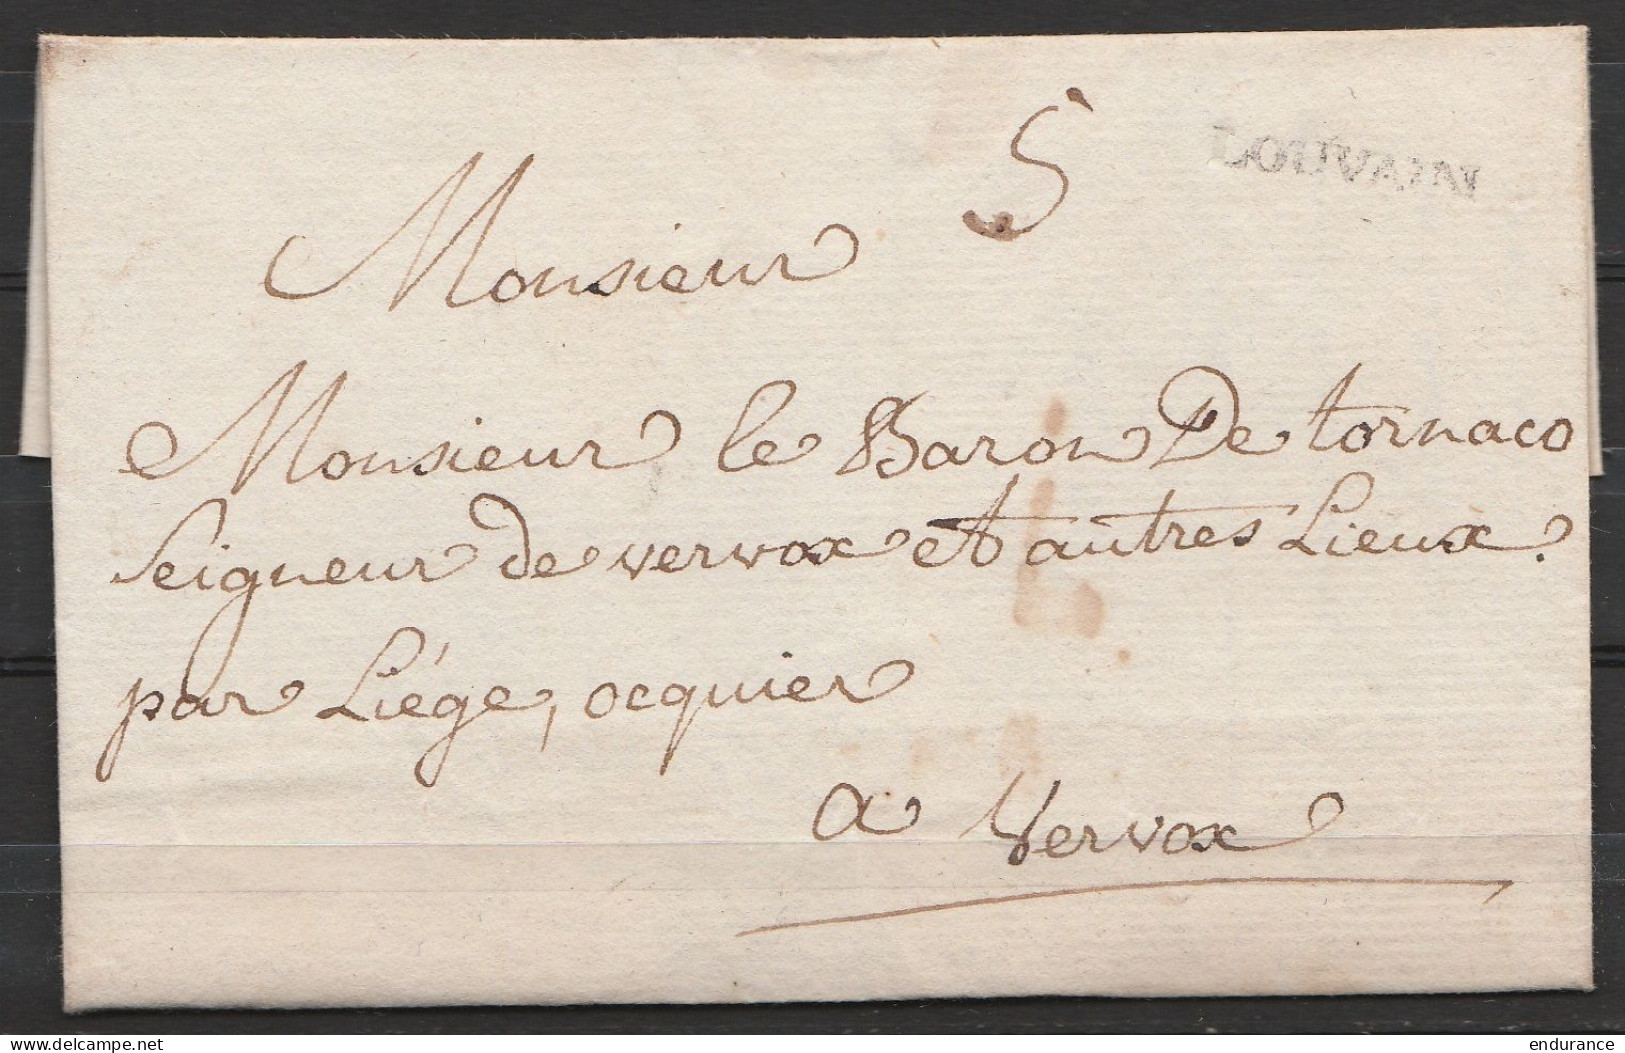 5
LOUVAIN
Monsieur
Monsieur le Baron De tornaco
Seigneur de vervox et autres Lieux.
par Liége, ocquier
a Vervox
delcampe.net
endurance